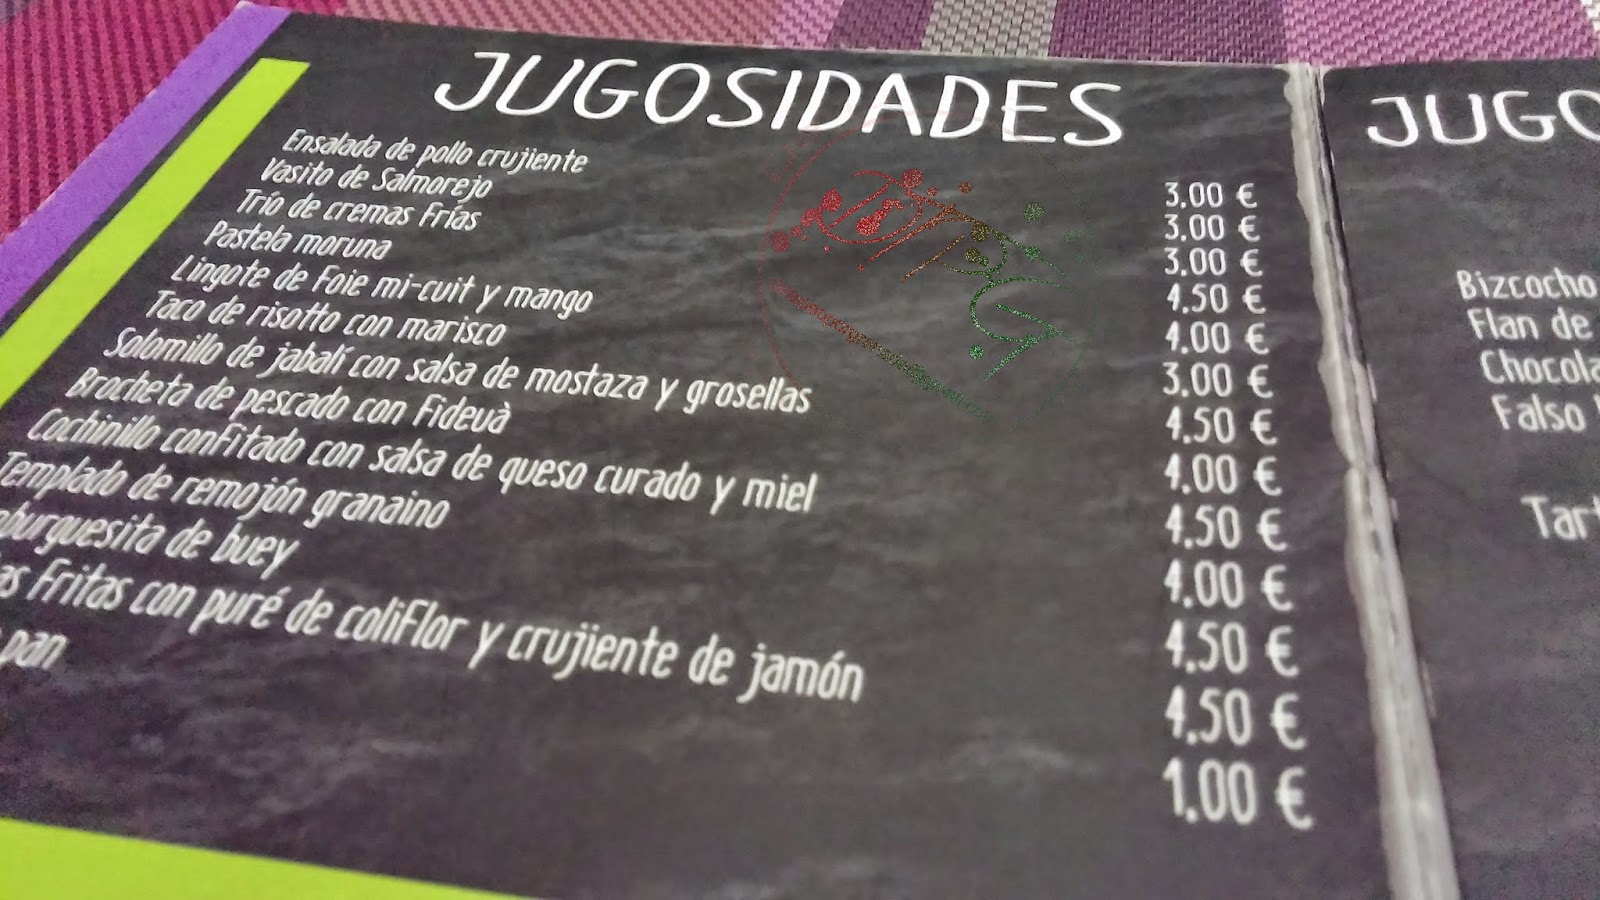 JUGOSIDADES
Ensalada de pollo crujiente 3.00 €
Vasito de Salmorejo 3.00 €
Trío de cremas Frías 3.00 €
Pastela moruna 4.50 €
Lingote de Foie mi-cuit y mango 4.00 €
Taco de risotto con marisco 3.00 €
Solomillo de jabalí con salsa de mostaza y grosellas 4.50 €
Brocheta de pescado con Fideuà 4.00 €
Cochinillo confitado con salsa de queso curado y miel 4.50 €
Templado de remojón granaino 4.00 €
mburguesita de buey 4.50 €
as Fritas con puré de coliFlor y crujiente de jamón 4.50 €
pan 1.00 €
JUGO
Bizcocho
Flan de
Chocola
Falso
Tart